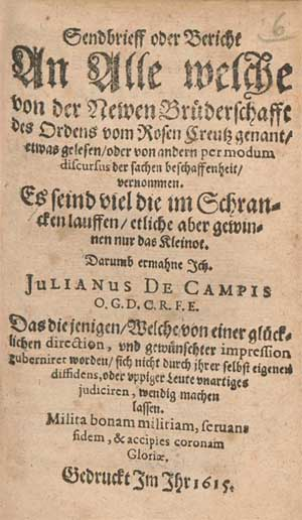 6
Sendbrieff oder Bericht
An Alle welche
von der Newen Brüderschafft
des Ordens vom Rosen Creutz genant/
etwas gelesen/oder von andern per modum
discursus der sachen beschaffenheit/
vernommen.
Es seind viel die im Schran-
cken lauffen/etliche aber gewin-
nen nur das Kleinot.
Darumb ermahne Ich.
JULIANUS DE CAMPIS
O.G.D.C.R.F.E.
Das die jenigen/Welche/von einer glück-
lichen direction, vnd gewünschter impression
guberniret worden/sich nicht durch jhrer selbst eigenen
diffidens, oder vppiger Leute vnartiges
judiciren, wendig machen
lassen.
Milita bonam militiam, seruans
fidem, & accipies coronam
Gloriæ.
Gedruckt Im Jhr 1615.